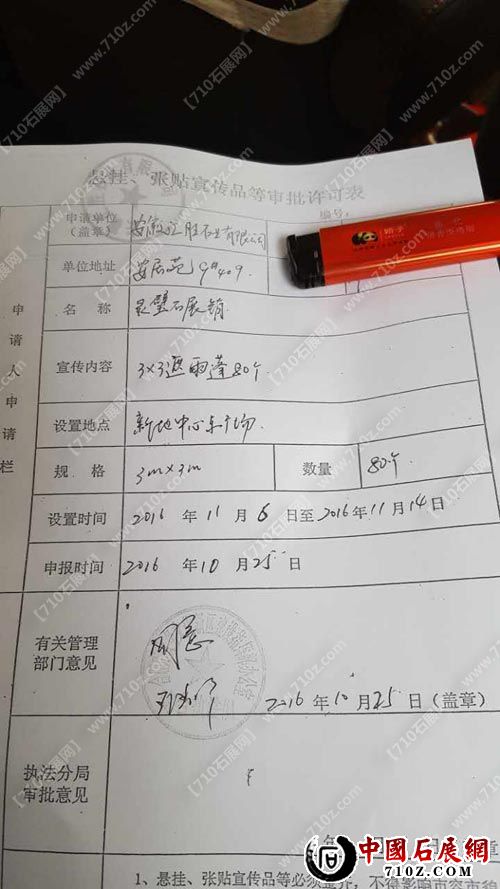 悬挂、张贴宣传品等审批许可表
编号:
申请人申请栏
申请单位
(盖章)
石业有限公司
单位地址
安居苑 9#409
名 称
灵璧石展销
宣传内容
3×3遮雨蓬80个
设置地点
新地中心东广场
规 格 3m×3m 数量 80个
设置时间 2016 年 11 月 6 日至 2016年 11月 14日
申报时间 2016 年 10 月 25 日
有关管理
部门意见
同意
2016 年 10 月 25 日 (盖章)
执法分局
审批意见
1、悬挂、张贴宣传品等必须
中國石展網
710z.com
【710石展网】
www.710z.com